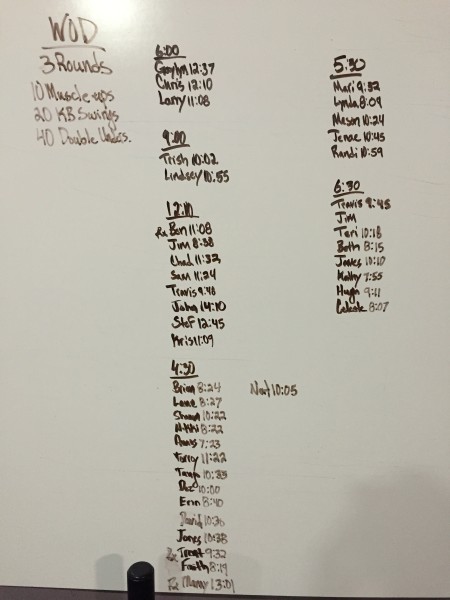 WOD
3 Rounds
10 Muscle-ups
20 KB Swings
40 Double Unders.
6:00
12:37
Chris 12:10
Larry 11:08
9:00
Trish 10:02
Lindsey 10:55
12:10
Rx Ben 11:08
Jim 8:38
Chad 11:32
Sam 11:24
Travis 9:48
John 14:10
Stef 12:45
Kris 11:09
4:30
Brian 8:24
Lane 8:27
Shawn 10:22
Nikki 8:22
7:23
11:22
10:35
10:00
Erin 8:40
David 10:30
Jones 10:38
Rx Trent 9:32
Faith 8:19
Rx 13:01
Nat 10:05
5:30
Mari 9:32
Lynda 8:09
Mason 10:24
Jenae 10:45
Randi 10:59
6:30
Travis 9:45
Jim
Tari 10:18
Beth 8:15
James 10:10
Kathy 7:55
Hugh 9:11
Celeste 8:07